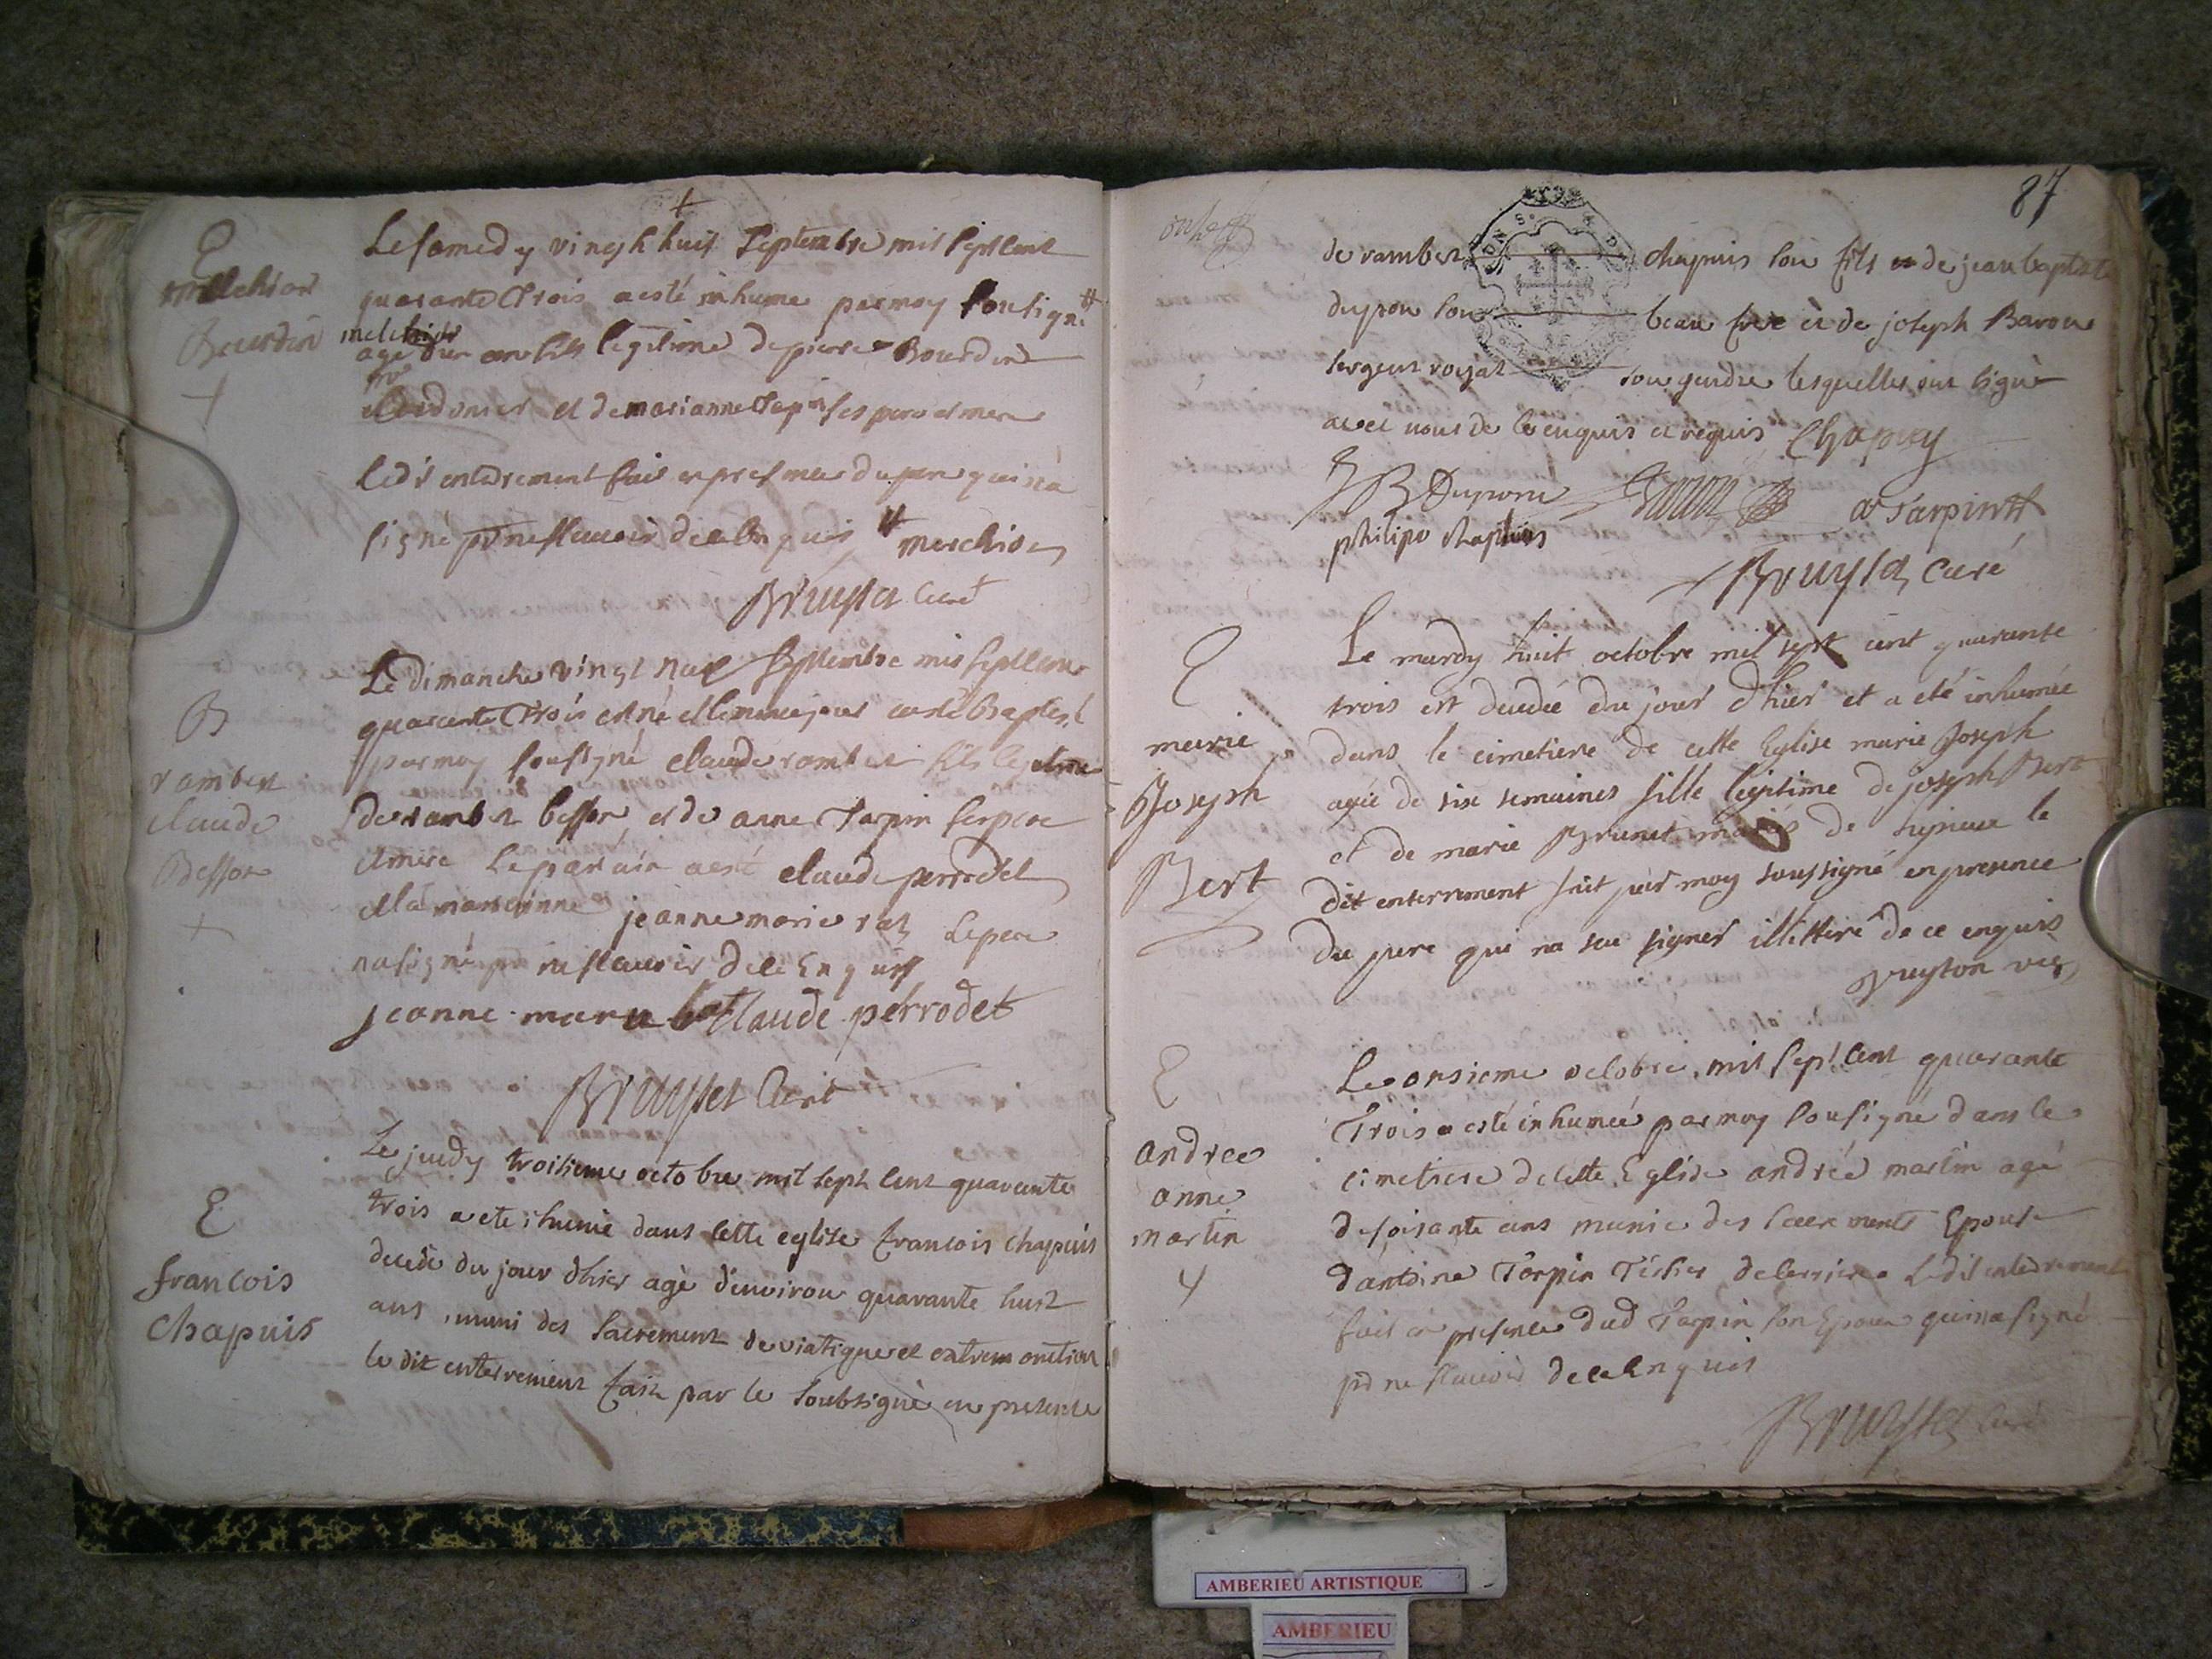 E
melchior
Bourdin
Le samedy vingt huit septembre mil sept cent
quarante trois a esté inhume par moy sousigné
melchior
agé d'un an fils legitime de pierre Bourdin
cordonier et de marianne Tarpin ses pere et mere
ledit enterement fait en presence du pere qui n'a
signé pour ne scavoir de ce enquis merchior
Bruyset Curé
B
rambert
claude
Besson
Le dimanche vingt neuf septembre mil sept cent
quarante trois est né et le meme jour a esté Baptisé
par moy sousigné claude rambert fils legitime
de rambert besson et de anne Tarpin ses pere
et mere Le parain a esté claude perrodet
et la maraine jeanne marie rat Le pere
na signé pour ne scavoir de ce Enquis
jeanne marie rat Claude perrodet
Bruyset Curé
E
francois
Chapuis
Le jeudy troisieme octobre mil sept cent quarante
trois a ete ihumé dans cette eglise francois chapuis
decede du jour dhier agé denviron quarante huit
ans, muni des sacrement de viatique et extrem onction
le dit enterrement fait par le soubsigné en presence
87
de rambert chapuis son fils et de jean baptiste
dupon son beau frere et de joseph Baron
sergent royal son gendre lesquelles ont signé
avec nous de ce enquis et requis Chapuy
JB Dupont Baron A Tarpin
philipe chapuis
Bruyset Curé
E
marie
Joseph
Bert
Le mardy huit octobre mil sept cent quarante
trois est decedée du jour d'hier et a eté inhumée
dans le cimetiere de cette Eglise marie Joseph
agée de six semaines fille legitime de joseph Bert
et de marie Brunet mariés de le
dit enterrement fait par moy soussigné en presence
du pere qui na sçu signer illettéré de ce enquis
E
andree
anne
martin
Le onsieme octobre mil sept cent quarante
Trois a esté inhumée par moy sousigné dans le
cimetiere de cette Eglise andrée martin agé
de soisante ans munie des sacrements Epouse
dantoine Tarpin Ledit enterement
fait en presence dud Tarpin son Epoux qui na signé
pour ne scavoir de ce Enquis
Bruyset Curé
AMBERIEU ARTISTIQUE
AMBERIEU